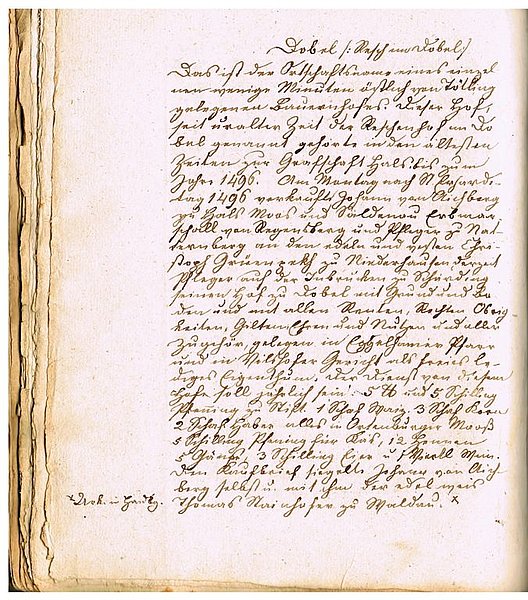 Dobel /: Resch am Dobel:/
Das ist der Ortschaftsname eines einzel
nen wenige Minuten östlich von Tötling
gelegenen Bauernhofes. Dieser Hof,
seit uralter Zeit der Reschenhof am Do
bel genannt gehörte in den ältesten
Zeiten zur Grafschaft Hals bis zum
Jahre 1496. Am Montag nach St
tag 1496 verkaufte Johann von Aichberg
zu Hals Moos und Söldenau Erbmar
schall von Regensberg und Pfleger zu Nat
ternberg an den edeln und vesten Chri
stoph zu Niederhausen derzeit
Pfleger auf der zu Schärding
seinen Hof zu Dobel mit Grund und Bo
den und mit allen Renten, Rechten Obrig
keiten, Gilten Ehren und Nutzen und aller
Zugehör, gelegen in Egglhamer Pfarr
und in Vilshofer Gericht als freies le
diges Eigenthum. Der Dienst von diesem
Hofe soll jährlich sein: 5 ℔ und 5 Schilling
Pfening zu Stift. 1 Schaf Waiz. 3 Schaf Korn
2 Schaf Haber alles in Ortenburger Mooß
5 Schilling Pfening für Käs, 12 Hennen
5 Gänse, 3 Schilling Eier u 1 Viertl Wein.
Den Kaufbrief siegelte Johann von Aich
berg selbst u. mit ihm der edel weis
Thomas Nainhofer zu Waldau. x
x Urk. in Händ